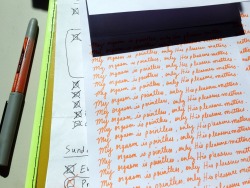 My orgasm is pointless, only His pleasure matters
My orgasm is pointless, only His pleasure matters
My orgasm is pointless, only His pleasure matters
My orgasm is pointless, only His pleasure matters
My orgasm is pointless, only His pleasure matters
My orgasm is pointless, only His pleasure matters
My orgasm is pointless, only His pleasure matters
My orgasm is pointless, only His pleasure matters
My orgasm is pointless, only His pleasure matters
My orgasm is pointless, only His pleasure matters
My orgasm is pointless, only His pleasure matters
My orgasm is pointless, only His pleasure matters
My orgasm is pointless, only His pleasure
Sund